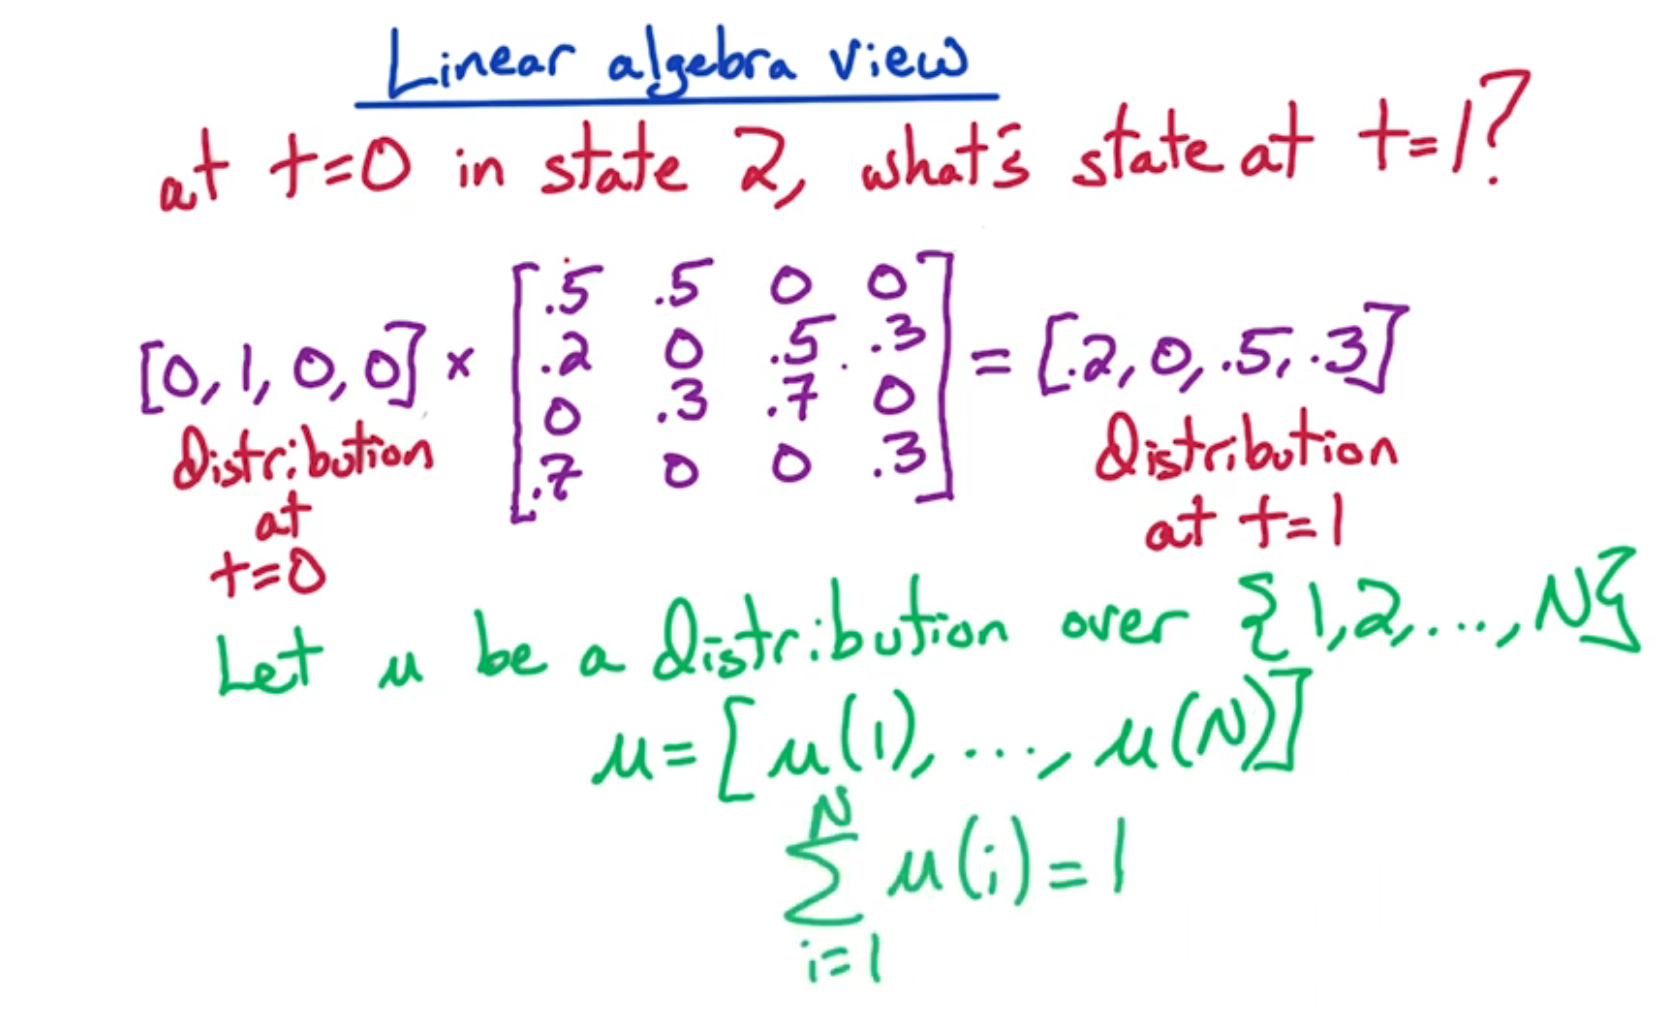 Linear algebra view
at t=0 in state 2, what's state at t=1?
[0, 1, 0, 0] × [.5 .5 0 0
.2 0 .5 .3
0 .3 .7 0
.7 0 0 .3] = [.2, 0, .5, .3]
Distribution at t=0
Distribution at t=1
Let μ be a distribution over {1,2,...,N}
μ=[μ(1), ..., μ(N)]
N
∑ μ(i)=1
i=1